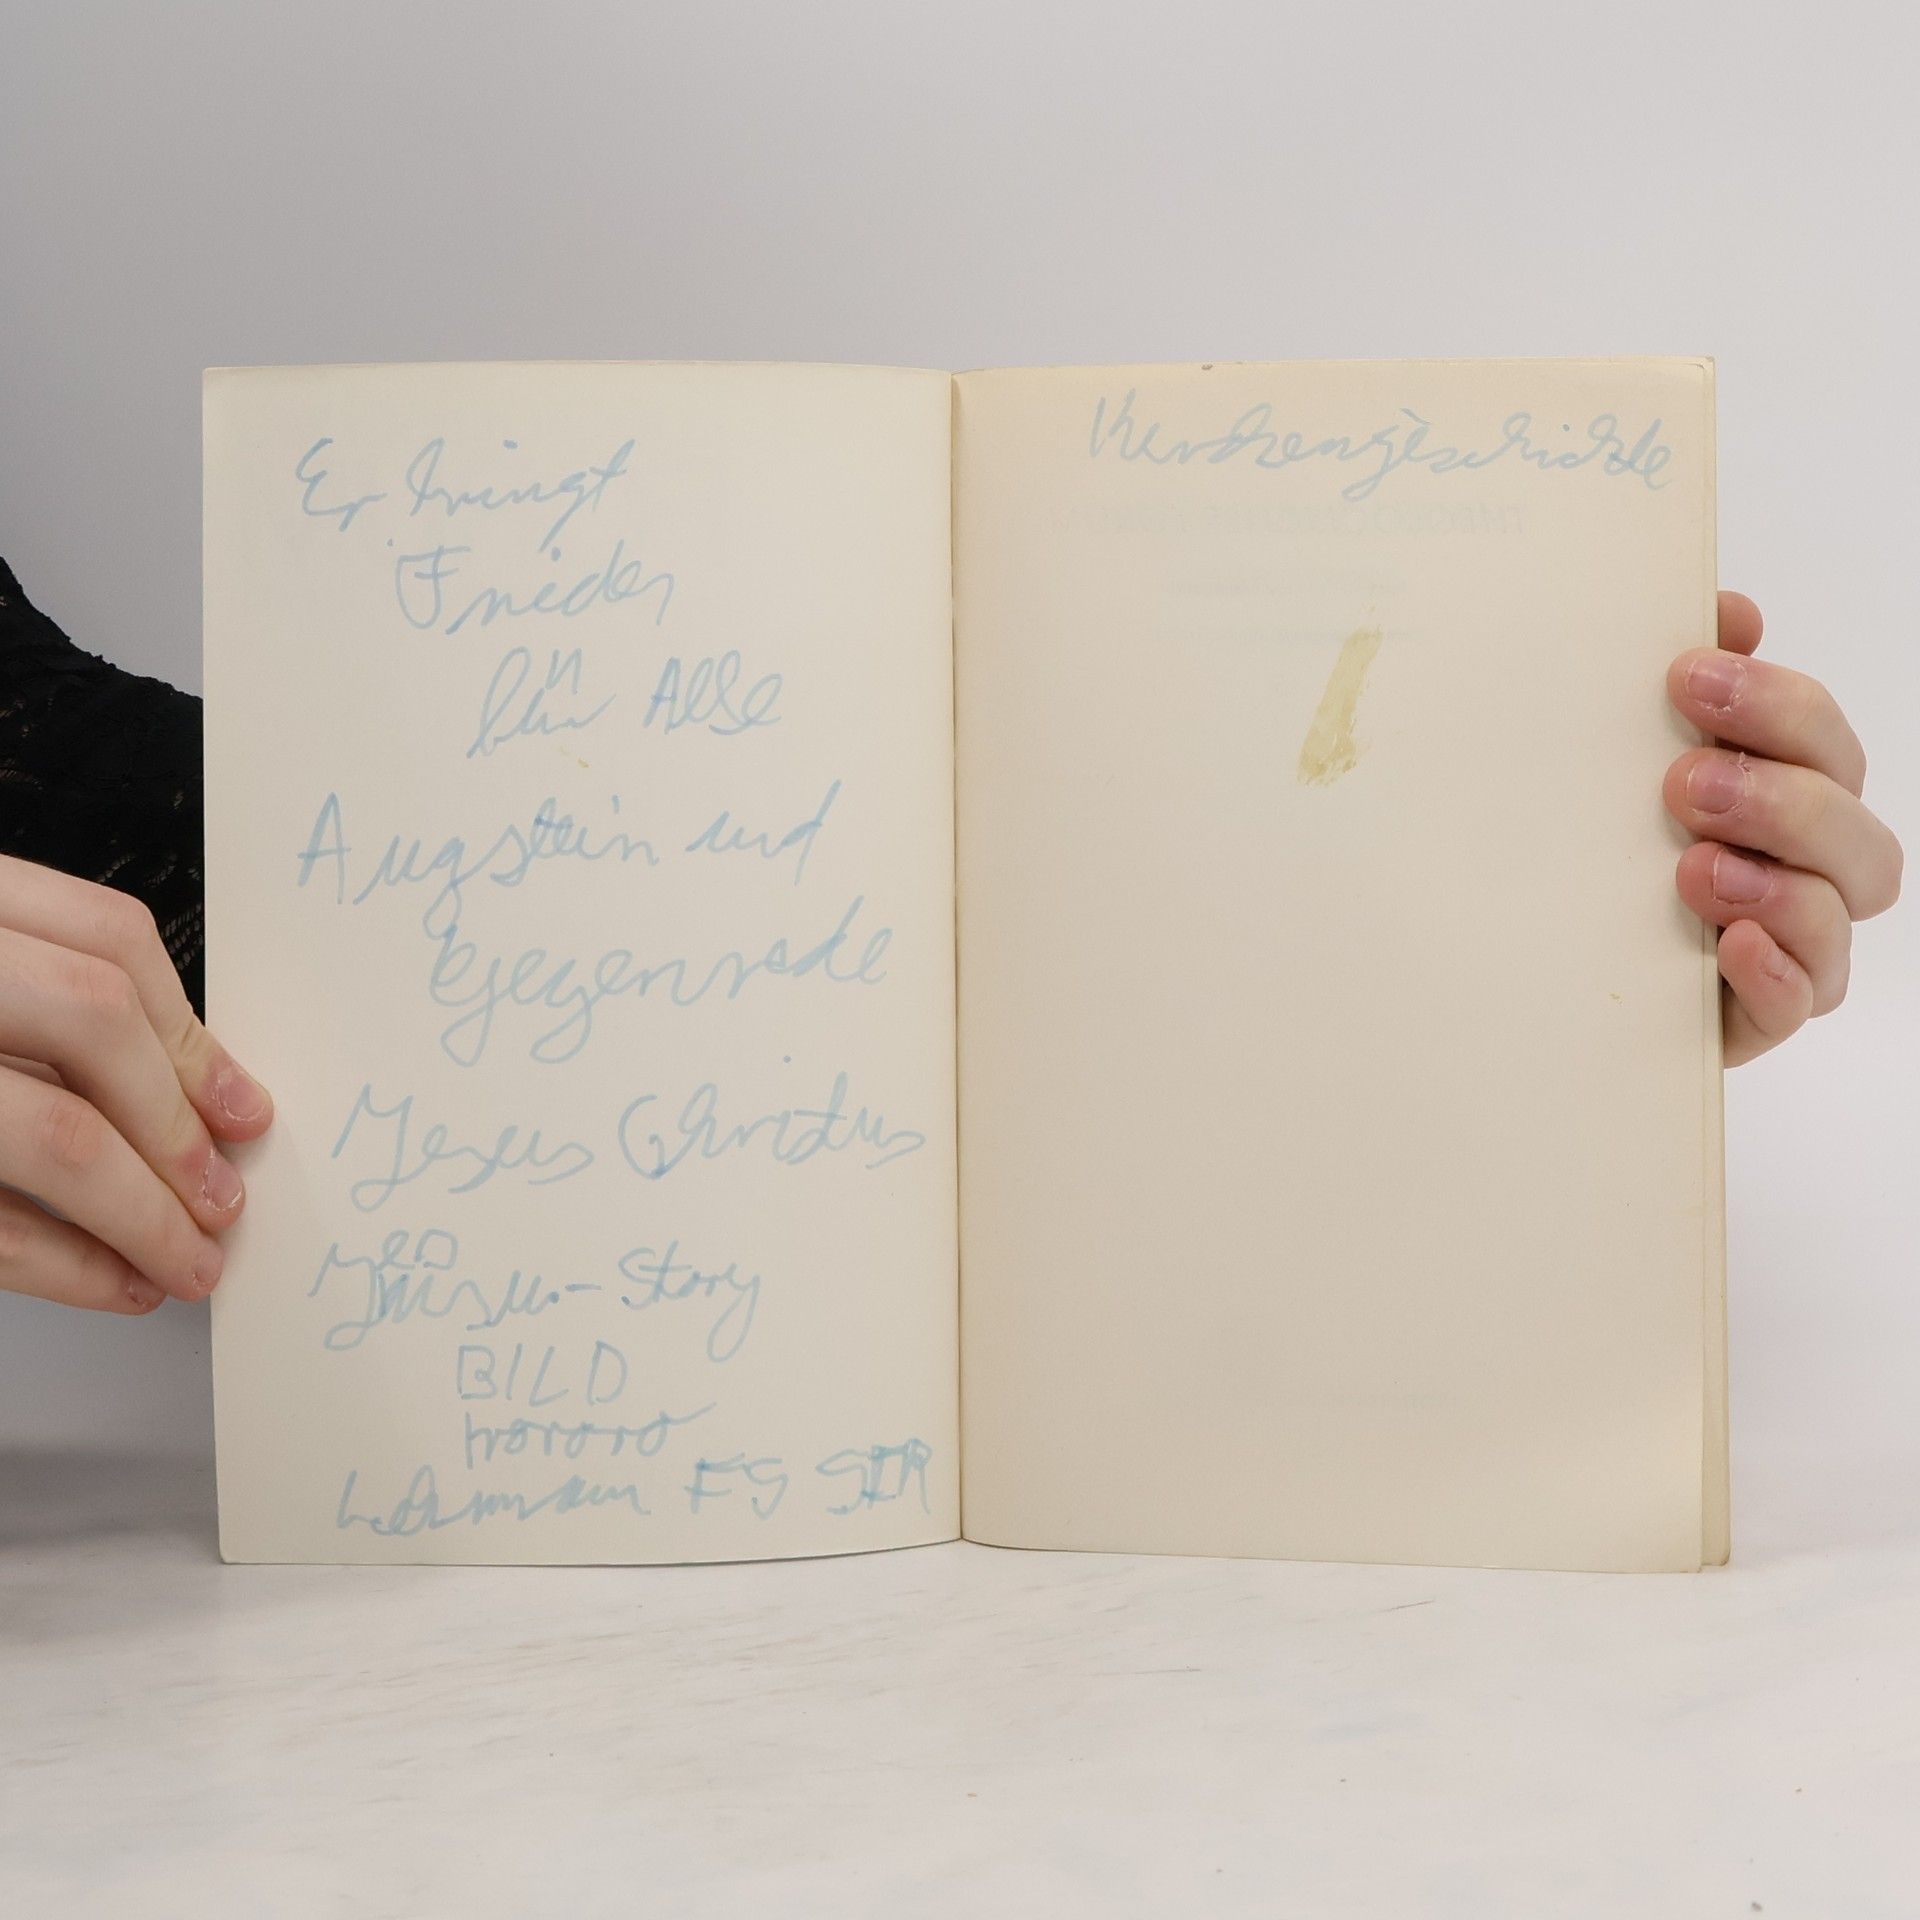 Er bringt
Frieden
für Alle
Augstein und
Gegenrede
Jesus Christus
Jesu.-Story
BILD
rororo
Lehmann FS
Kirchengeschichte